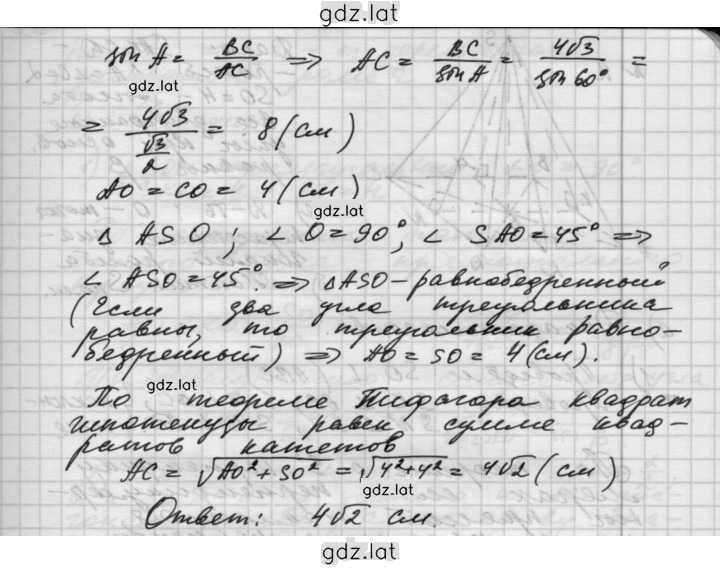 gdz.lat
sin A = BC/AC => AC = BC/sin A = 4√3/sin 60° =
gdz.lat
= 4√3/(√3/2) = 8 (см)
AO = CO = 4 (см)
gdz.lat
△ ASO; ∠ O = 90°, ∠ SAO = 45° =>
∠ ASO = 45°. => △ASO - равнобедренный
(Если два угла треугольника
равны, то треугольник равно-
бедренный) => AO = SO = 4 (см).
gdz.lat
По теореме Пифагора квадрат
гипотенузы равен сумме квад-
ратов катетов
AC = √(AO² + SO²) = √(4² + 4²) = 4√2 (см)
gdz.lat
Ответ: 4√2 см.
gdz.lat